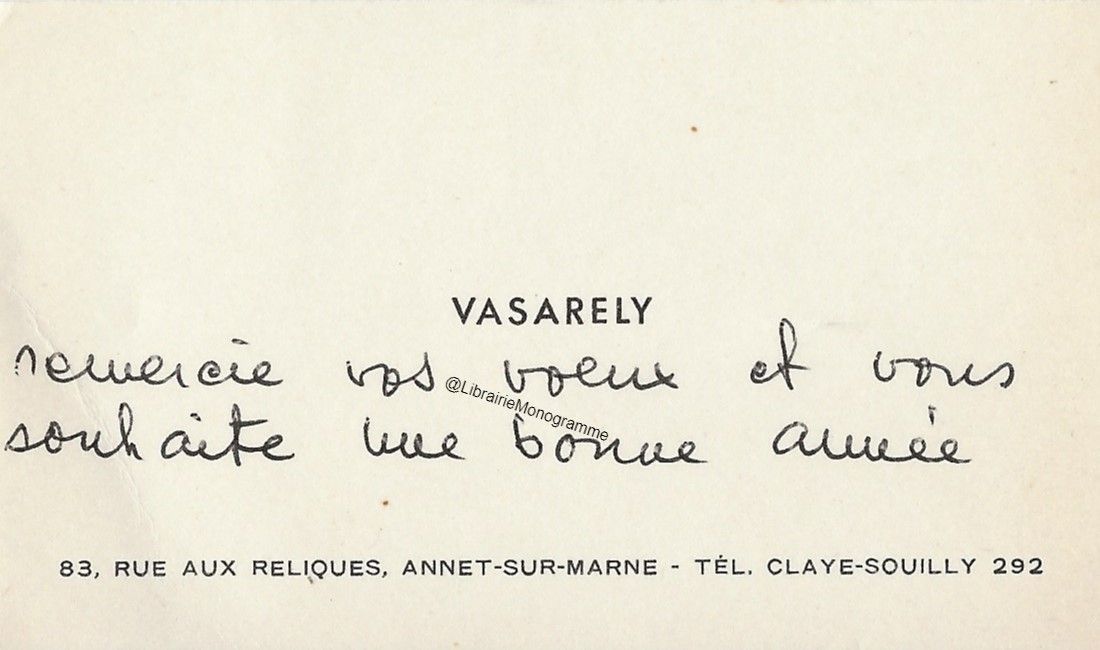 VASARELY
remercie vos voeux et vous
@LibrairieMonogramme
souhaite une bonne année
83, RUE AUX RELIQUES, ANNET-SUR-MARNE - TÉL. CLAYE-SOUILLY 292